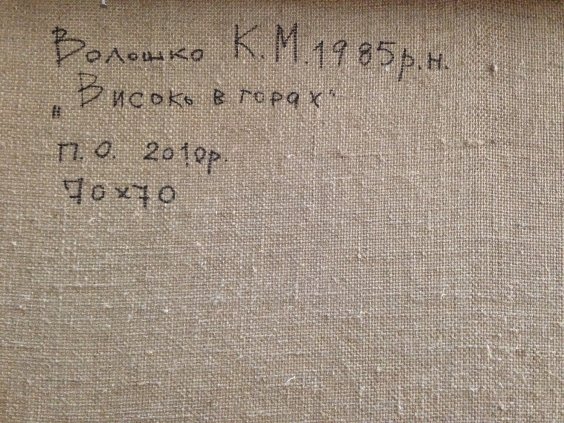 Волошко К.М. 1985р.н.
„Високо в горах“
П.О. 2010р.
70х70